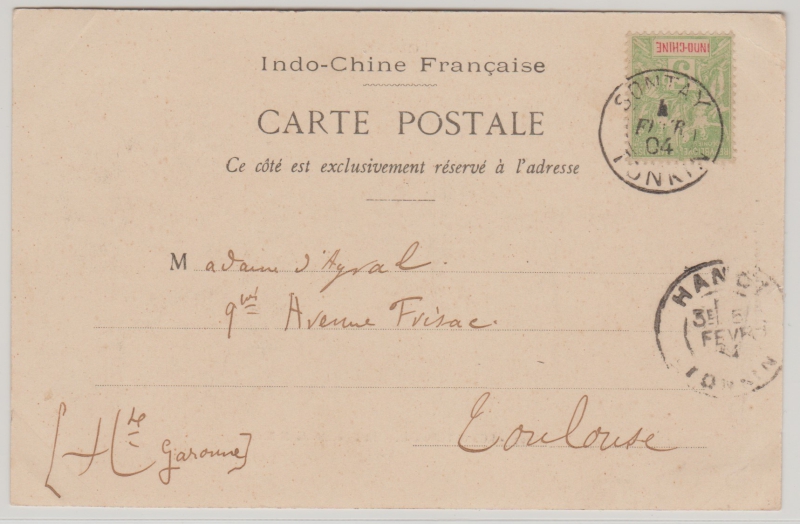 Indo-Chine Française
CARTE POSTALE
Ce côté est exclusivement réservé à l'adresse
INDO-CHINE
5
SONTAY
FEVR
04
TONKIN
Madame d'Ayral.
Avenue Frisac.
Toulouse
[Hte Garonne]
HANOI
3E
FEVR
TONKIN